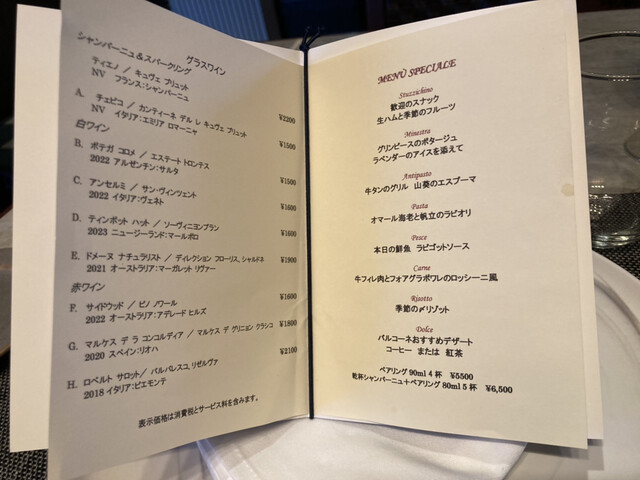 グラスワイン
シャンパーニュ&スパークリング
ティエノ / キュヴェ ブリュット
NV フランス:シャンパーニュ
¥2200
A. チェビコ / カンティーネ デル レ キュヴェ ブリュット
NV イタリア:エミリア ロマーニャ
¥1500
白ワイン
B. ボデガ コロメ / エステート トロンテス
2022 アルゼンチン:サルタ
¥1500
C. アンセルミ / サン・ヴィンツェント
2022 イタリア:ヴェネト
¥1600
D. ティンポット ハット / ソーヴィニヨンブラン
2023 ニュージーランド:マールボロ
¥1600
E. ドメーヌ ナチュラリスト / ディレクション フローリス、シャルドネ
2021 オーストラリア:マーガレット リヴァー
¥1900
赤ワイン
F. サイドウッド / ピノ ノワール
2022 オーストラリア:アデレード ヒルズ
¥1600
G. マルケス デ ラ コンコルディア / マルケス デ グリニョン クラシコ
2020 スペイン:リオハ
¥1800
H. ロベルト サロット / バルバレスコ、リゼルヴァ
2018 イタリア:ピエモンテ
¥2100
表示価格は消費税とサービス料を含みます。
MENÙ SPECIALE
Stuzzichino
歓迎のスナック
生ハムと季節のフルーツ
Minestra
グリンピースのポタージュ
ラベンダーのアイスを添えて
Antipasto
牛タンのグリル 山葵のエスプーマ
Pasta
オマール海老と帆立のラビオリ
Pesce
本日の鮮魚 ラビゴットソース
Carne
牛フィレ肉とフォアグラポワレのロッシーニ風
Risotto
季節の〆リゾット
Dolce
バルコーネおすすめデザート
コーヒー または 紅茶
ペアリング 90ml 4 杯 ¥5500
乾杯シャンパーニュ+ペアリング 80ml 5 杯 ¥6,500